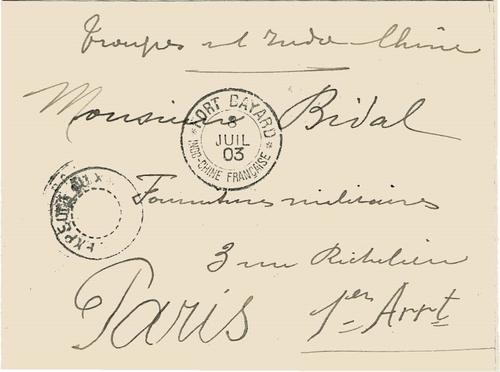 Troupes et Indo-Chine
Monsieur Bidal
FORT BAYARD
8
JUIL
03
INDO-CHINE FRANÇAISE
Fournitures militaires
3 rue Richelieu
Paris 1er Arrt